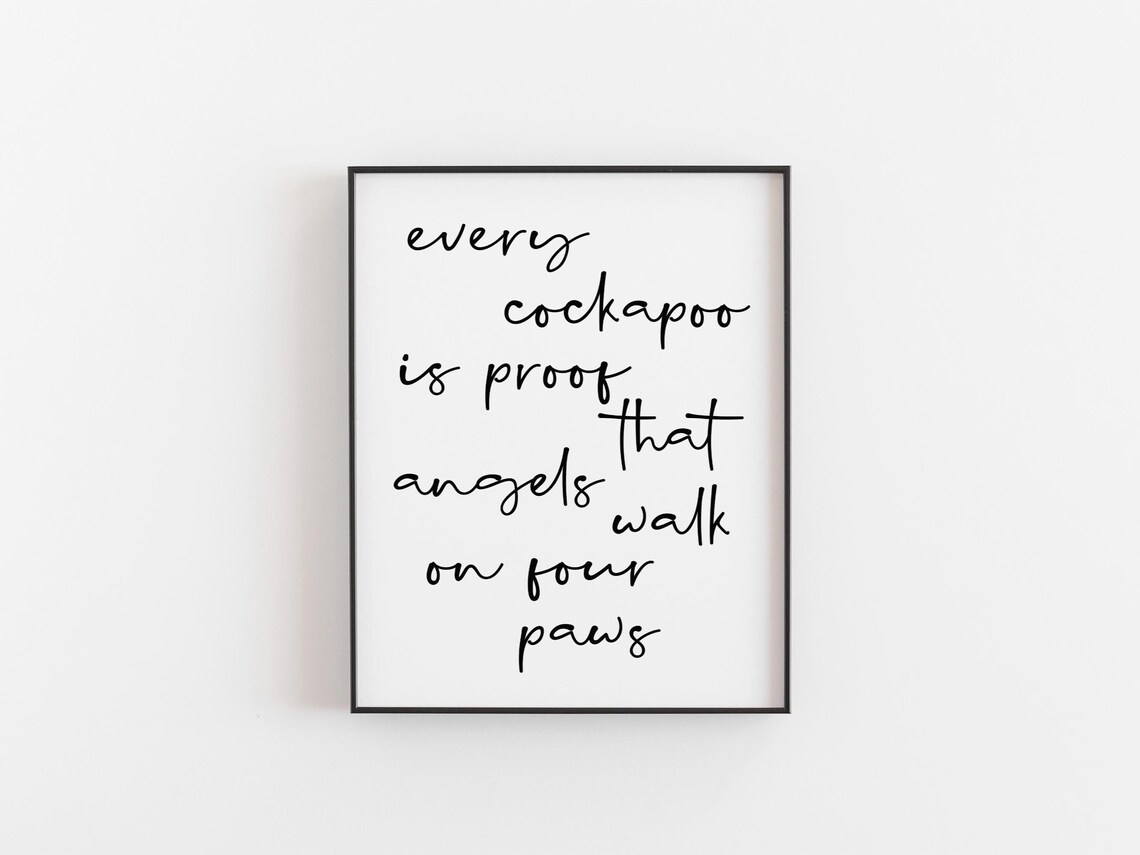 every
cockapoo
is proof
that
angels
walk
on four
paws